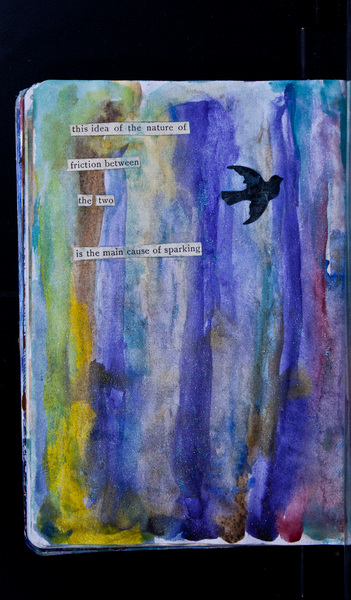 this idea of the nature of
friction between
the two
is the main cause of sparking